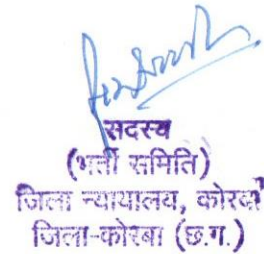 सदस्य
(भर्ती समिति)
जिला न्यायालय, कोरबा
जिला-कोरबा (छ.ग.)